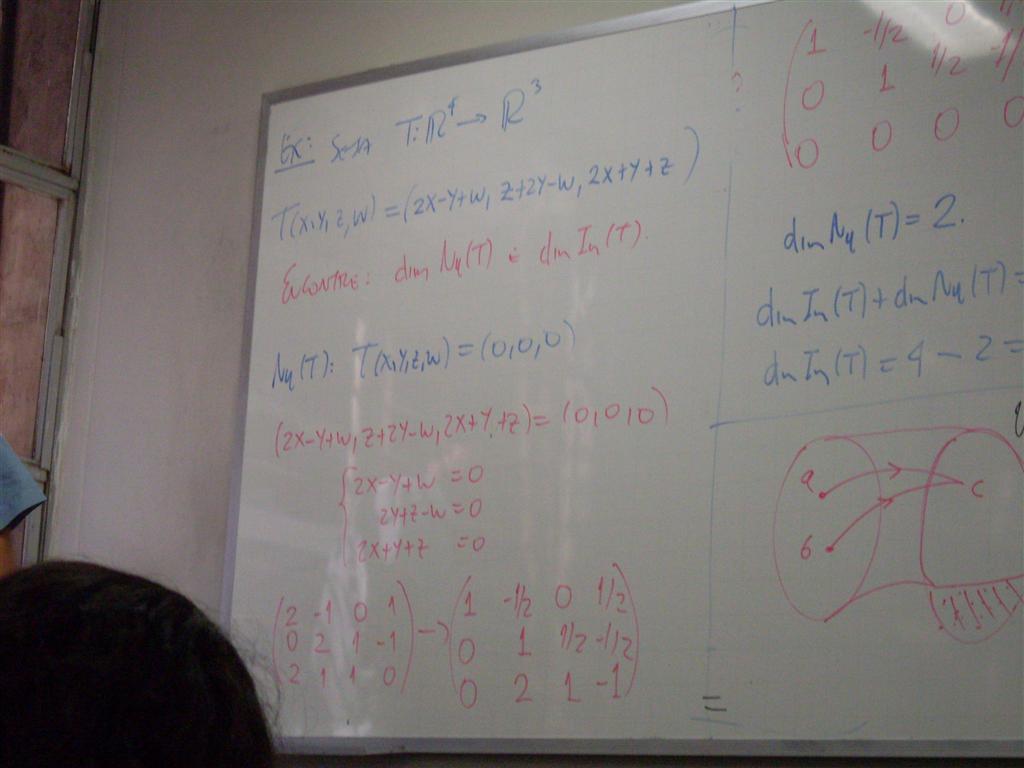 Ex: Seja T: ℝ⁴ → ℝ³
T(x,y,z,w) = (2x-y+w, z+2y-w, 2x+y+z)
Encontre: dim Nu(T) e dim Im(T).
Nu(T): T(x,y,z,w) = (0,0,0)
(2x-y+w, z+2y-w, 2x+y+z) = (0,0,0)
{2x-y+w = 0
2y+z-w = 0
2x+y+z = 0
(2 -1 0 1) → (1 -1/2 0 1/2)
(0 2 1 -1) (0 1 1/2 -1/2)
(2 1 1 0) (0 2 1 -1)
=
?
(1 -1/2 0
0 1 1/2
0 0 0 0
dim Nu(T) = 2.
dim Im(T) + dim Nu(T) =
dim Im(T) = 4 - 2 =
a
c
b